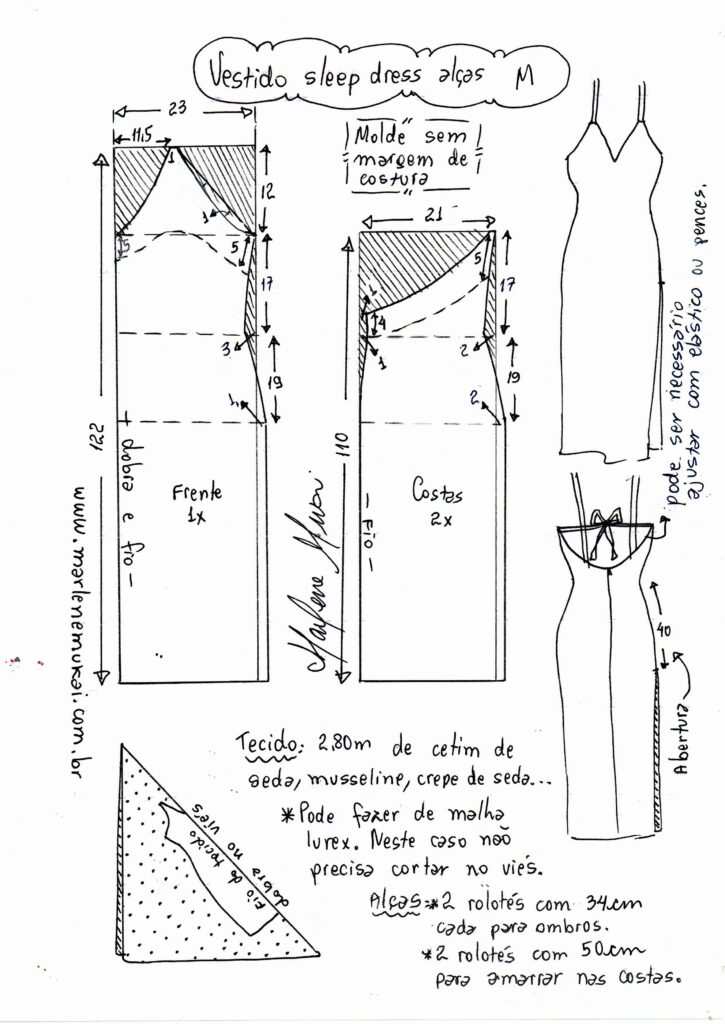 Vestido sleep dress alças M
Molde sem
margem de
costura
23
11,5
1
12
1
5
5
17
3
19
1
122
+ dobra e fio —
Frente
1x
www.marlenemukai.com.br
21
5
17
1
4
1
2
19
2
110
— Fio —
Costas
2x
Marlene Mukai
pode ser necessário
ajustar com elástico ou pences.
40
Abertura
Tecido: 2,80m de cetim de
seda, musseline, crepe de seda...
*Pode fazer de malha
lurex. Neste caso não
precisa cortar no viés.
Alças:*2 rolotés com 34cm
cada para ombros.
*2 rolotés com 50cm
para amarrar nas costas.
dobra no viés
Fio do tecido